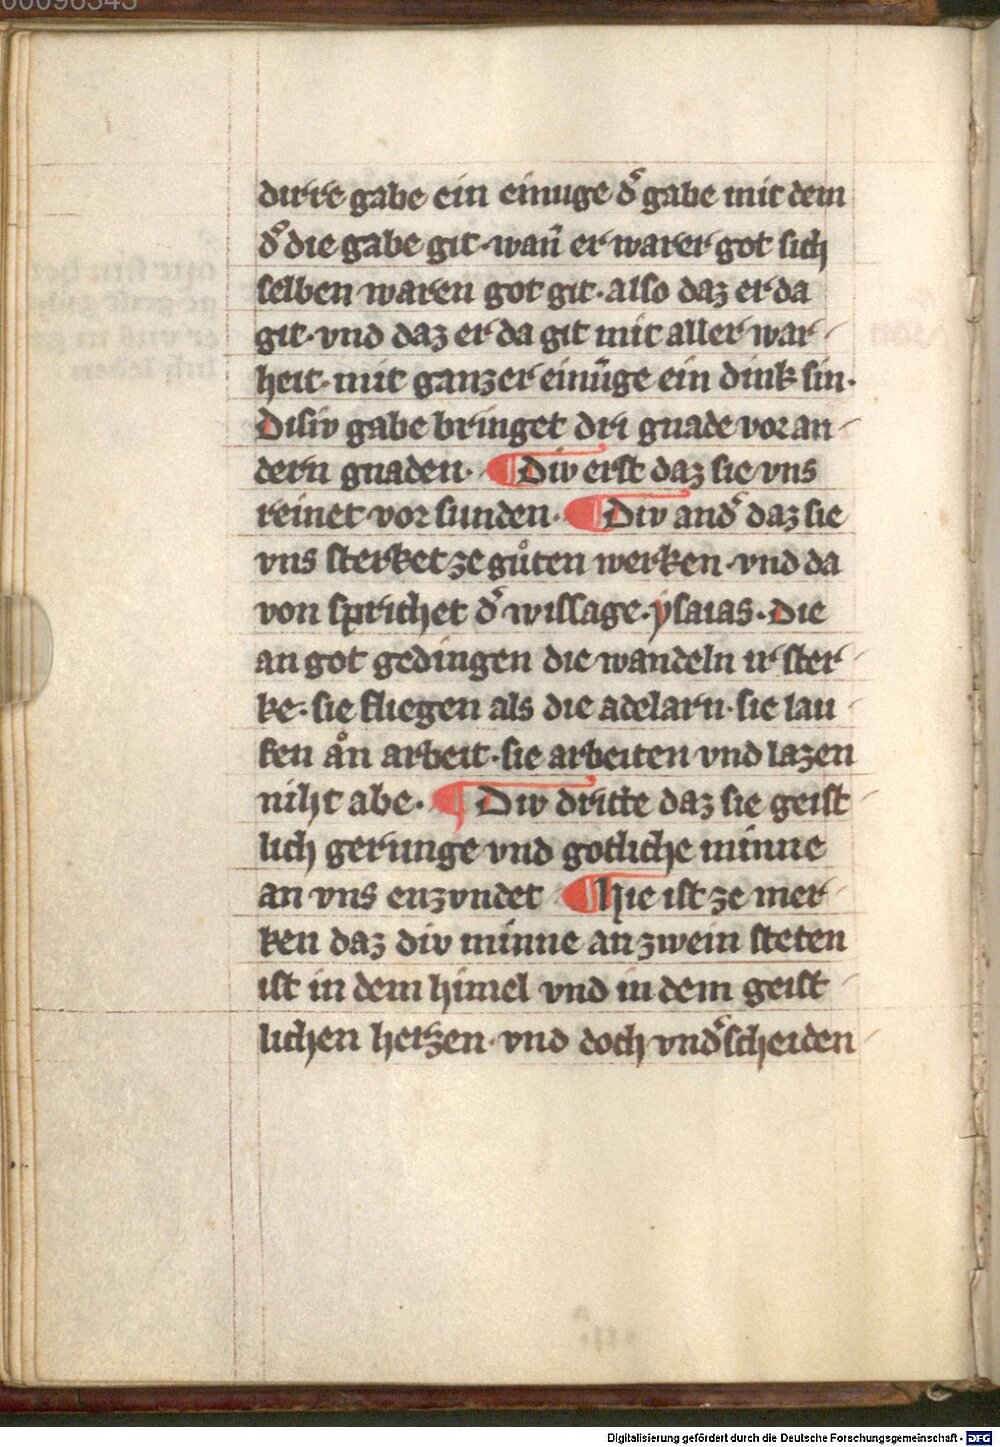 00096343
dirre gabe ein einuge dˢ gabe mit dem
dˢ die gabe git · wan̄ er warer got sich
selben waren got git · also daz er da
git · vnd daz er da git mit aller war
heit · mit ganzer einūge ein dink sin ·
Disiv gabe bringet dri gnade vor an
dern gnaden · ¶ Div erst daz sie vns
reinet vor sunden · ¶ Div andˢ daz sie
vns sterket ze guͦten werken · vnd da
von sprichet dˢ wissage · ysaias · Die
an got gedingen die wandeln ir ster
ke · sie fliegen als die adelarn · sie lau
fen an̊ arbeit · sie arbeiten vnd lazen
niht abe · ¶ Div dritte daz sie geist
lich gerunge vnd gotliche minne
an vns enzvndet ¶ Hie ist ze mer
ken daz div minne an zwein steten
ist in dem himel vnd in dem geist
lichen herzen · vnd doch vndˢscheiden
Digitalisierung gefördert durch die Deutsche Forschungsgemeinschaft - DFG